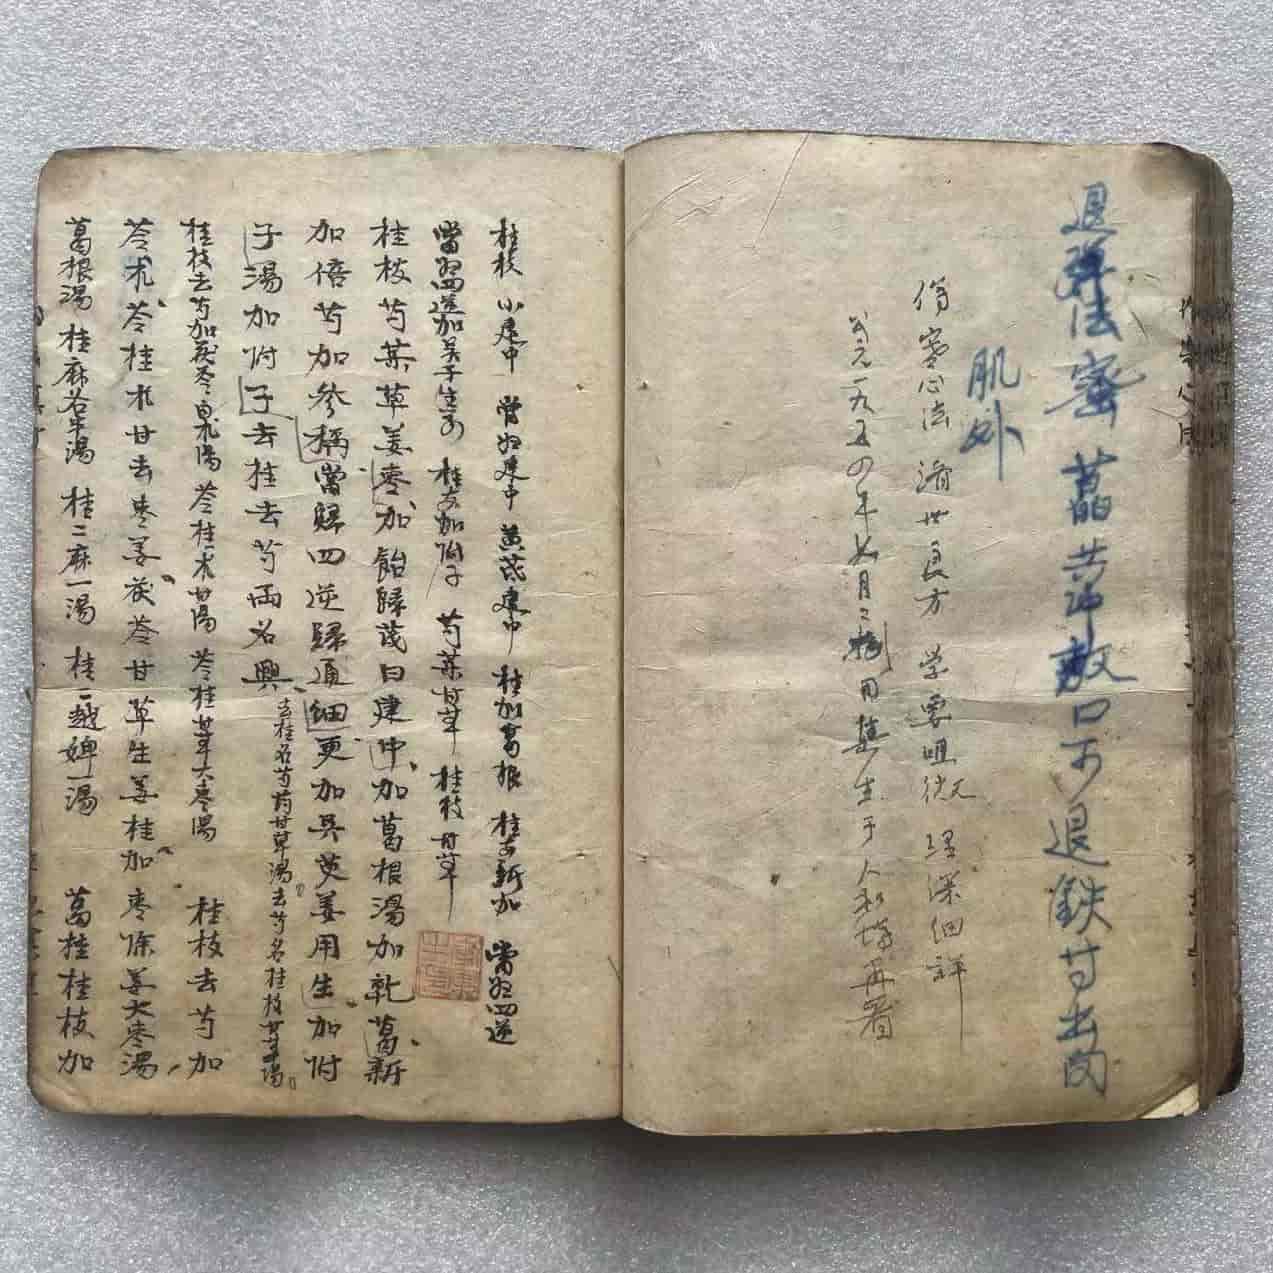 退弹法蜜 蕌 敷口可退鉄寸出肉
肌外
伤寒心法 济世良方 学要咀微 理深细详
公元一九五四年 月 用集生于人和 再署
桂枝 小建中 當归建中 黄芪建中 桂加葛根 桂枝新加 當归四逆
當归四逆加吴 生 桂枝加附子 芍藥甘草 桂枝甘草
桂枝芍藥草姜枣加飴歸茂曰建中加葛根湯加乾葛新
加倍芍加參稱當歸四逆歸通細更加吳萸姜用生加附
子湯加附子去桂去芍兩名興
去桂名芍药甘草湯去芍名桂枝甘草湯
桂枝去芍加茯苓 湯 苓桂术甘湯 苓桂甘草大枣湯 桂枝去芍加
苓朮苓桂朮甘去枣姜茯苓甘草生姜桂加枣除姜大枣湯
葛根湯 桂麻各半湯 桂二麻一湯 桂二越婢一湯 葛桂桂枝加